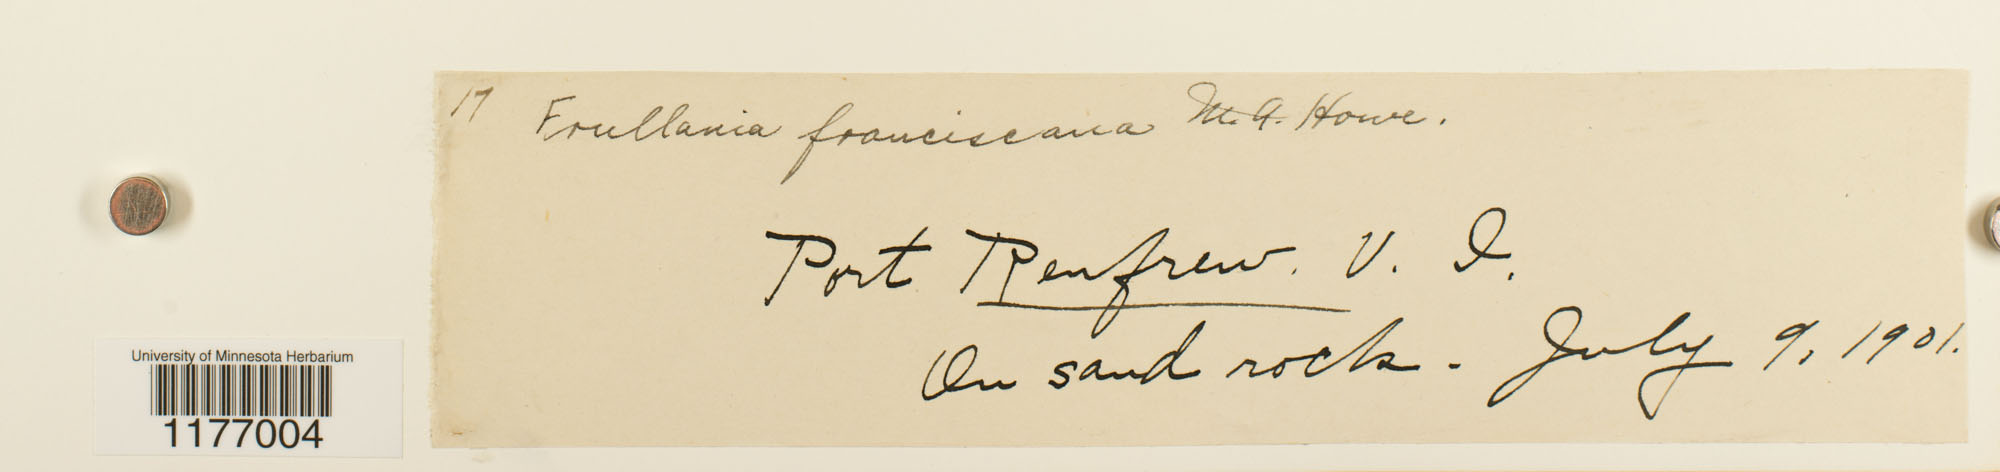 17 Frullania franciscana M.A. Howe.
Port Renfrew. V. I.
On sand rock. July 9, 1901.
University of Minnesota Herbarium
1177004